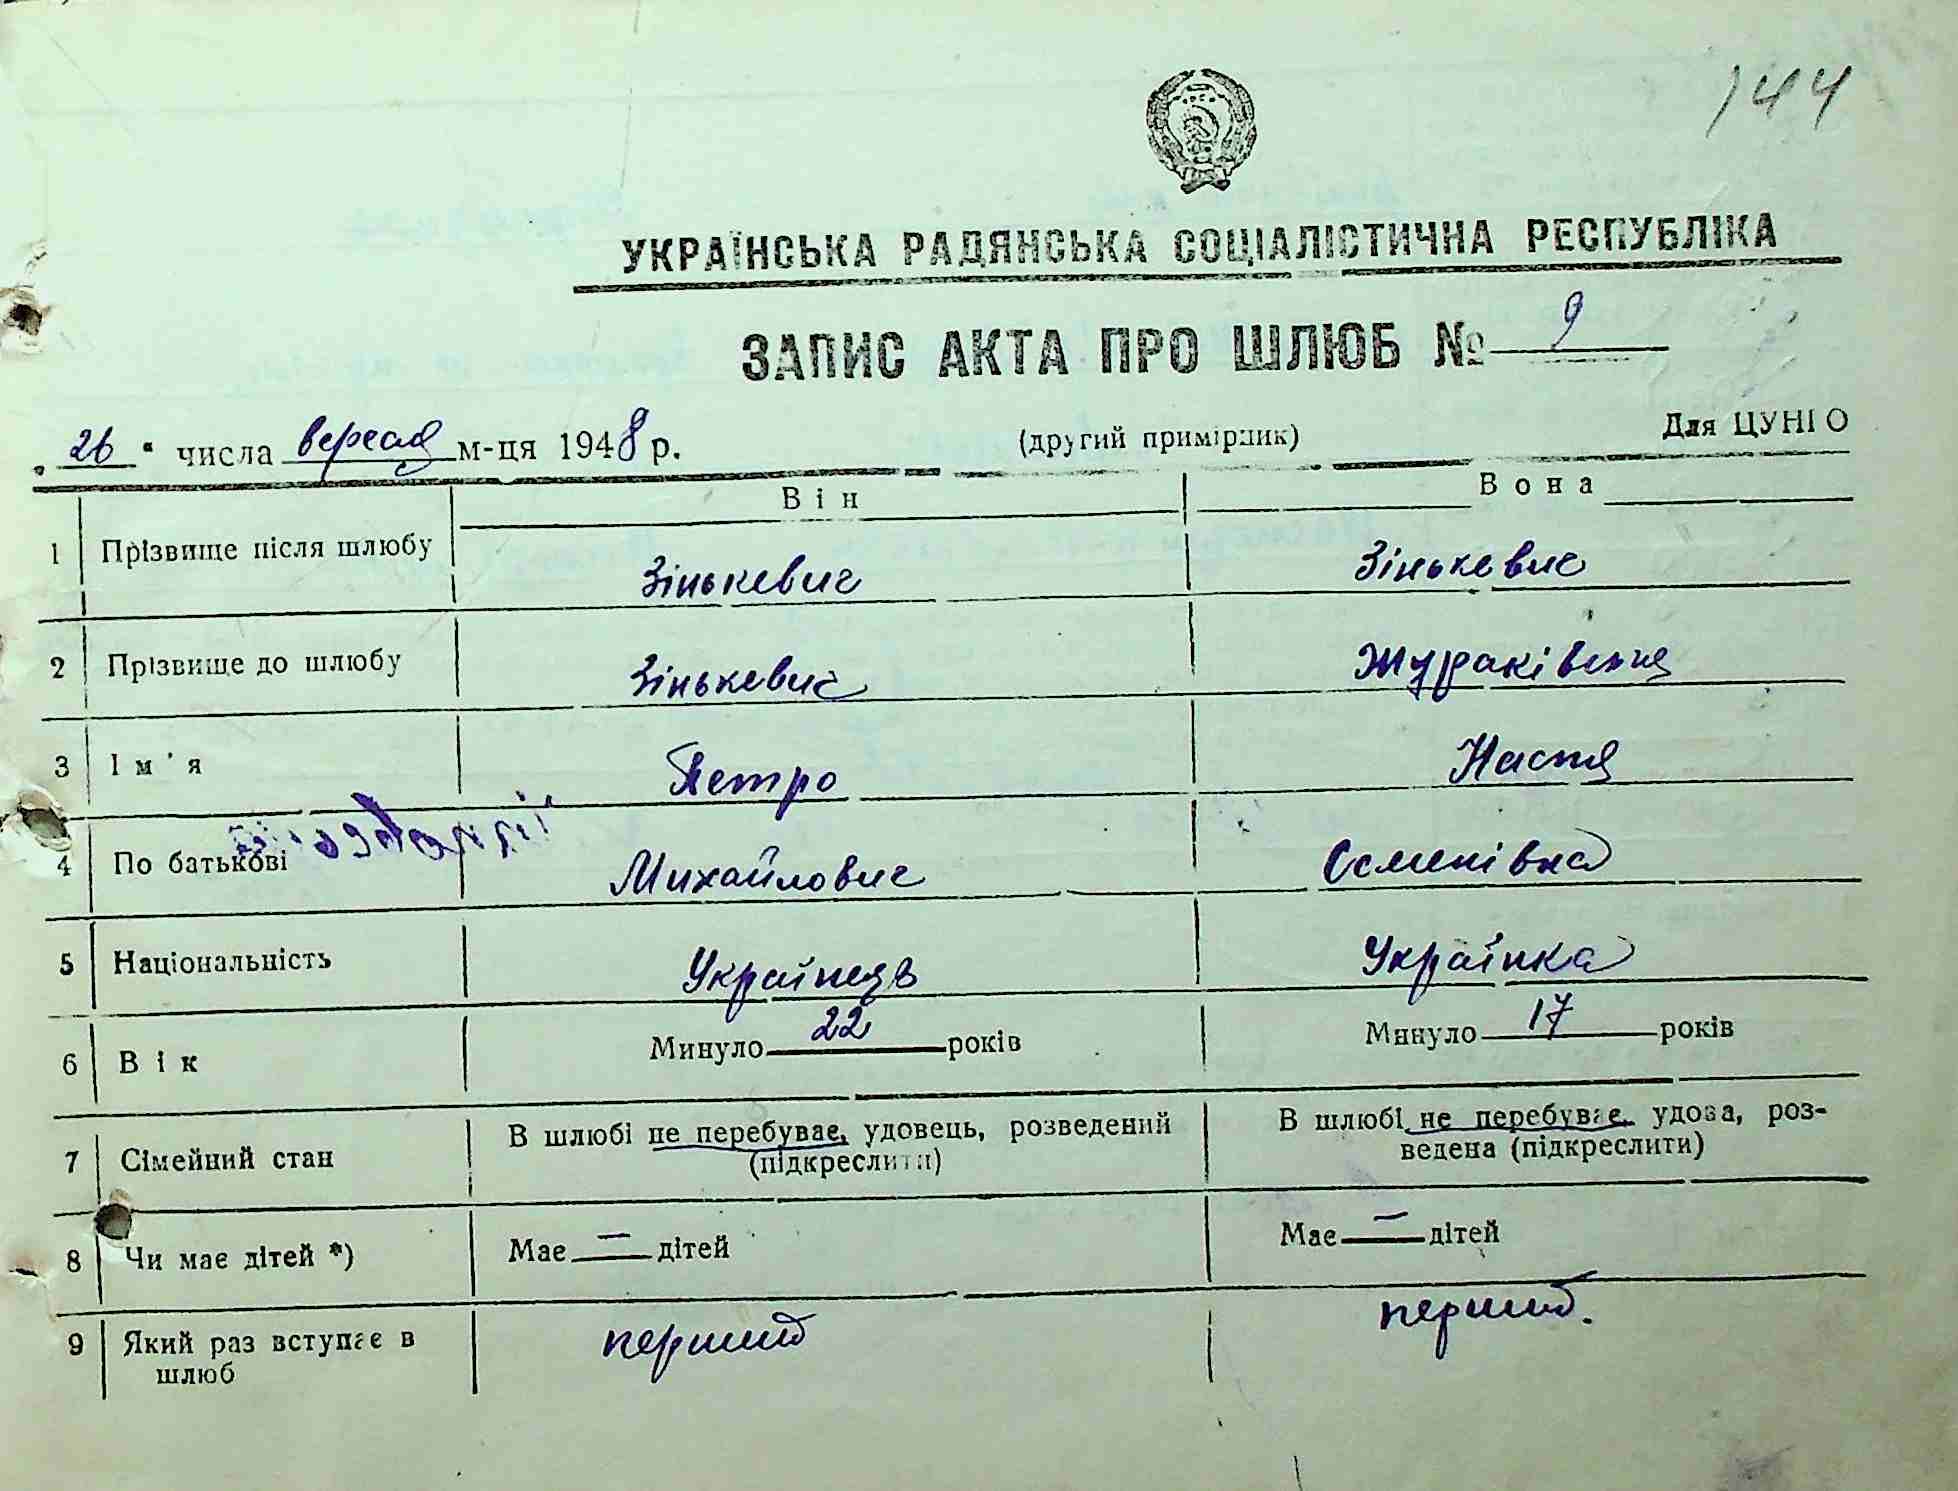 144
УКРАЇНСЬКА РАДЯНСЬКА СОЦІАЛІСТИЧНА РЕСПУБЛІКА
ЗАПИС АКТА ПРО ШЛЮБ № 9
„26“ числа вересня м-ця 1948 р. (другий примірник) Для ЦУНГО
Він Вона
1 Прізвище після шлюбу Зінькевич Зінькевич
2 Прізвище до шлюбу Зінькевич Жураківська
3 Ім'я Петро Настя
4 По батькові Михайлович Семенівна
5 Національність Українець Українка
6 Вік Минуло 22 років Минуло 17 років
7 Сімейний стан В шлюбі не перебуває, удовець, розведений (підкреслити) В шлюбі не перебуває, удова, роз-
ведена (підкреслити)
8 Чи має дітей *) Має — дітей Має — дітей
9 Який раз вступає в шлюб перший перший.